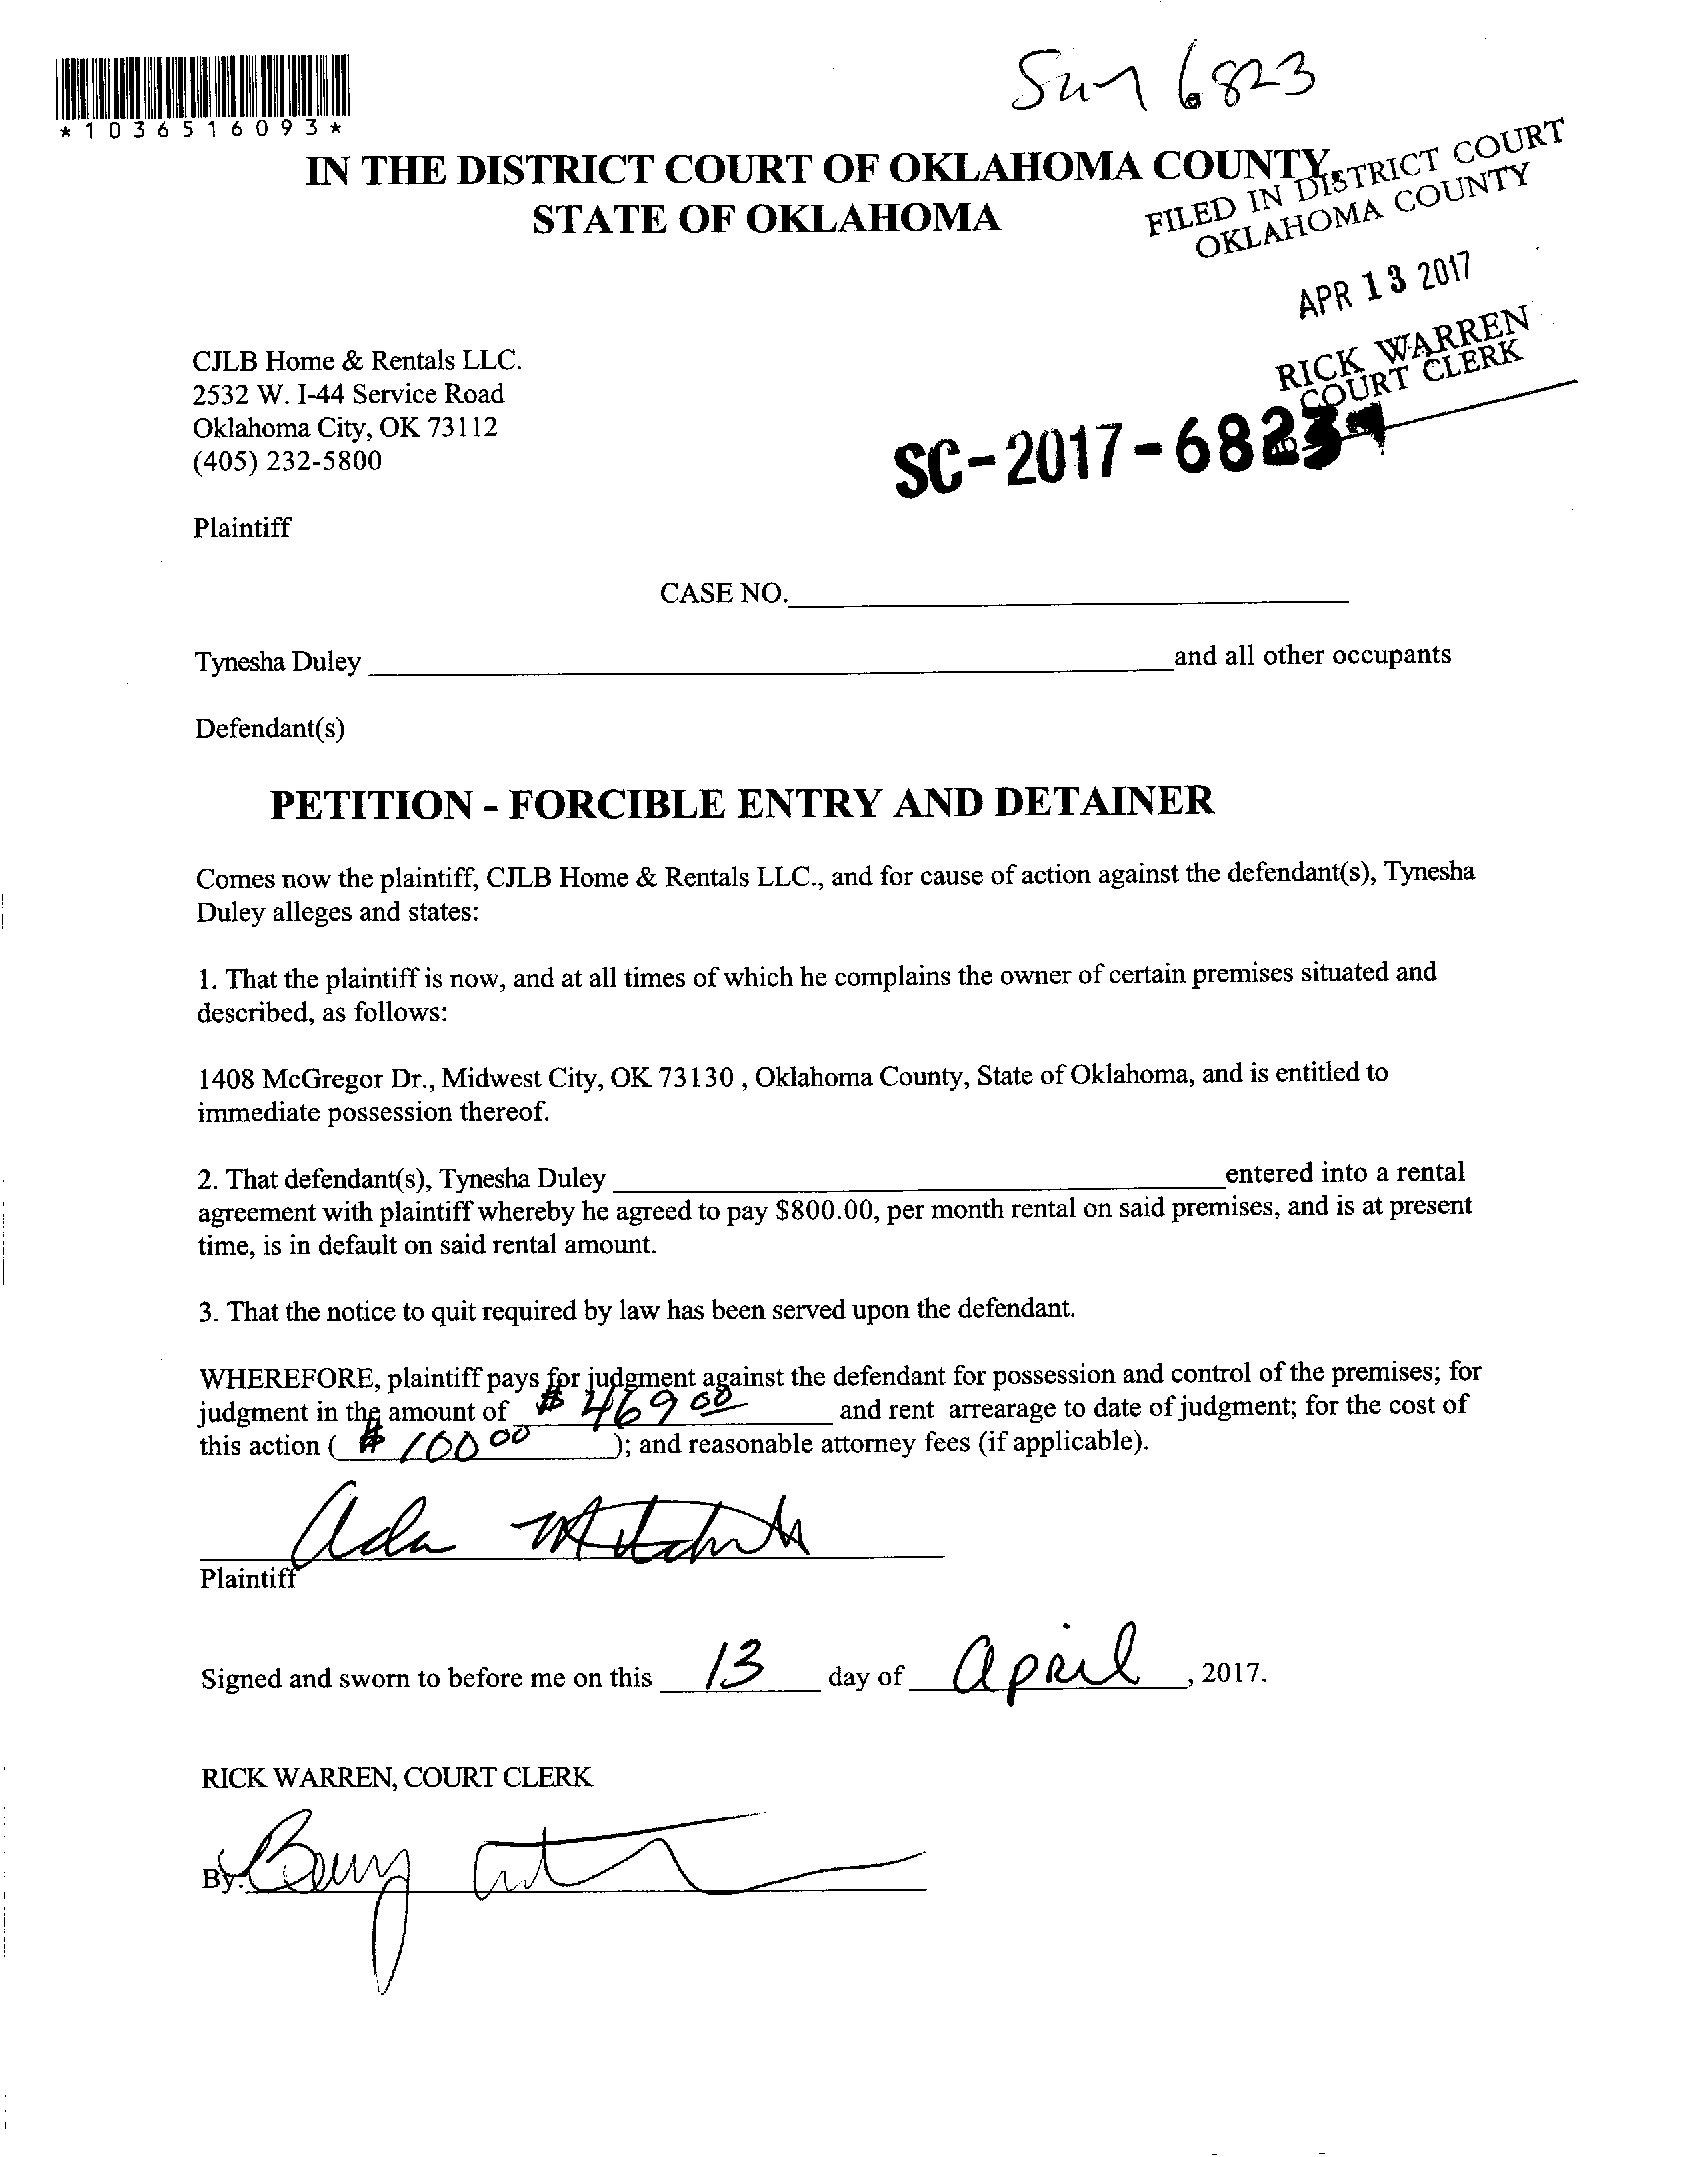 6823
*1036516093*
IN THE DISTRICT COURT OF OKLAHOMA COUNTY
STATE OF OKLAHOMA
FILED IN DISTRICT COURT
OKLAHOMA COUNTY
APR 13 2017
RICK WARREN
COURT CLERK
CJLB Home & Rentals LLC.
2532 W. I-44 Service Road
Oklahoma City, OK 73112
(405) 232-5800
SC-2017-6823
Plaintiff
CASE NO.
Tynesha Duley and all other occupants
Defendant(s)
PETITION - FORCIBLE ENTRY AND DETAINER
Comes now the plaintiff, CJLB Home & Rentals LLC., and for cause of action against the defendant(s), Tynesha
Duley alleges and states:
1. That the plaintiff is now, and at all times of which he complains the owner of certain premises situated and
described, as follows:
1408 McGregor Dr., Midwest City, OK 73130 , Oklahoma County, State of Oklahoma, and is entitled to
immediate possession thereof.
2. That defendant(s), Tynesha Duley entered into a rental
agreement with plaintiff whereby he agreed to pay $800.00, per month rental on said premises, and is at present
time, is in default on said rental amount.
3. That the notice to quit required by law has been served upon the defendant.
WHEREFORE, plaintiff pays for judgment against the defendant for possession and control of the premises; for
judgment in the amount of $469 00 and rent arrearage to date of judgment; for the cost of
this action ( $100 00 ); and reasonable attorney fees (if applicable).
Ada
Plaintiff
Signed and sworn to before me on this 13 day of April , 2017.
RICK WARREN, COURT CLERK
By: